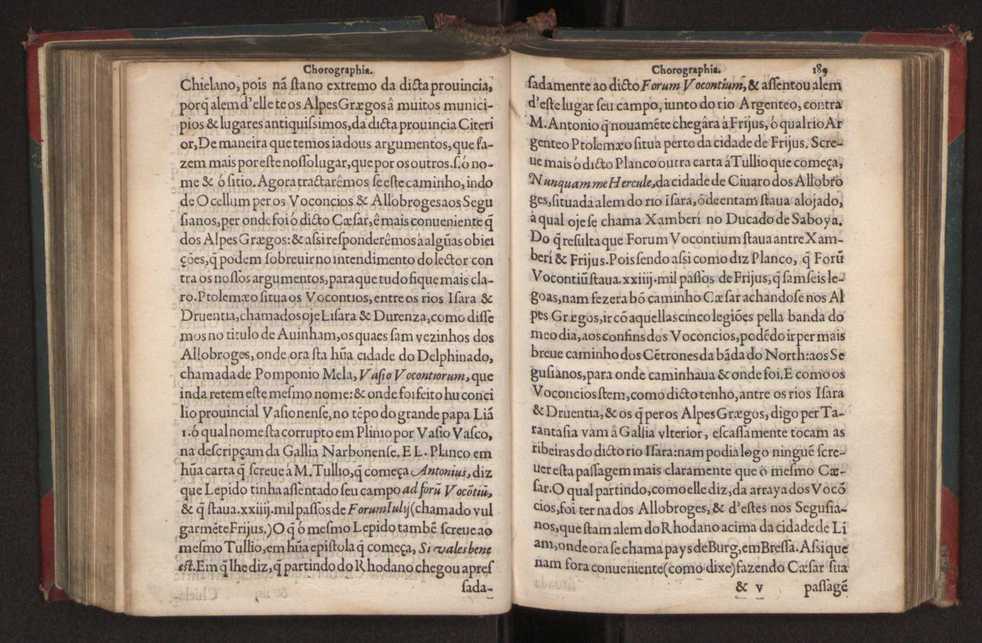 Chorographia.
Chielano, pois nã sta no extremo da dicta prouincia,
porq̃ alem d'elle te os Alpes Grægos â muitos munici-
pios & lugares antiquissimos, da dicta prouincia Citeri
or, De maneira que temos ia dous argumentos, que fa-
zem mais por este nosso lugar, que por os outros. s. ó no-
me & ó sitio. Agora tractarêmos se este caminho, indo
de Ocellum per os Voconcios & Allobroges aos Segu
sianos, per onde foi ô dicto Cæsar, ê mais conueniente q̃
dos Alpes Grægos: & assi responderêmos â algũas obiei
ções, q̃ podem sobreuir no intendimento do lector con
tra os nossos argumentos, para que tudo fique mais cla-
ro. Ptolemæo situa os Vocontios, entre os rios Isara &
Druentia, chamados oje Lisara & Durenza, como disse
mos no titulo de Auinham, os quaes sam vezinhos dos
Allobroges, onde ora sta hũa cidade do Delphinado,
chamada de Pomponio Mela, Vasio Vocontiorum, que
inda retem este mesmo nome: & onde foi feito hu conci
lio prouincial Vasionense, no tẽpo do grande papa Liã
1. ó qual nome sta corrupto em Plinio por Vasio Vasco,
na descripçam da Gallia Narbonense. E L. Planco em
hũa carta q̃ screue â M. Tullio, q̃ começa Antonius, diz
que Lepido tinha assentado seu campo ad forũ Vocõtiũ,
& q̃ staua .xxiiij. mil passos de Forum Iulij (chamado vul
garmẽte Frijus.) O q̃ ô mesmo Lepido tambẽ screue ao
mesmo Tullio, em hũa epistola q̃ começa, Si vales bene
est. Em q̃ lhe diz, q̃ partindo do Rhodano chegou apres
sada-
Chorographia. 189
sadamente ao dicto Forum Vocontium, & assentou alem
d'este lugar seu campo, iunto do rio Argenteo, contra
M. Antonio q̃ nouamẽte chegâra â Frijus, ó qual rio Ar
genteo Ptolemæo situa pèrto da cidade de Frijus. Scre-
ue mais ô dicto Planco outra carta â Tullio que começa,
Nunquam me Hercule, da cidade de Ciuaro dos Allobro
ges, situada alem do rio Isara, õde entam staua alojado,
â qual oje se chama Xamberi no Ducado de Saboya.
Do q̃ resulta que Forum Vocontium staua antre Xam-
beri & Frijus. Pois sendo assi como diz Planco, q̃ Forũ
Vocontiũ staua .xxiiij. mil passos de Frijus, q̃ sam seis le-
goas, nam fezera bõ caminho Cæsar achandose nos Al
pes Grægos, ir cõ aquellas cinco legiões pella banda do
meo dia, aos confins dos Voconcios, podẽdo ir per mais
breue caminho dos Cẽtrones da bãda do North: aos Se
gusianos, para onde caminhaua & onde foi. E como os
Voconcios stem, como dicto tenho, antre os rios Isara
& Druentia, & os q̃ per os Alpes Grægos, digo per Ta-
rantasia vam â Gallia vlterior, escassamente tocam as
ribeiras do dicto rio Isara: nam podia logo ninguẽ scre-
uer esta passagem mais claramente que ô mesmo Cæ-
sar. O qual partindo, como elle diz, da arraya dos Vocõ
cios, foi ter na dos Allobroges, & d'estes nos Segusia-
nos, que stam alem do Rhodano acima da cidade de Li
am, onde ora se chama pays de Burg, em Bressa. Assi que
nam fora conueniente (como dixe) fazendo Cæsar sua
& v passagẽ